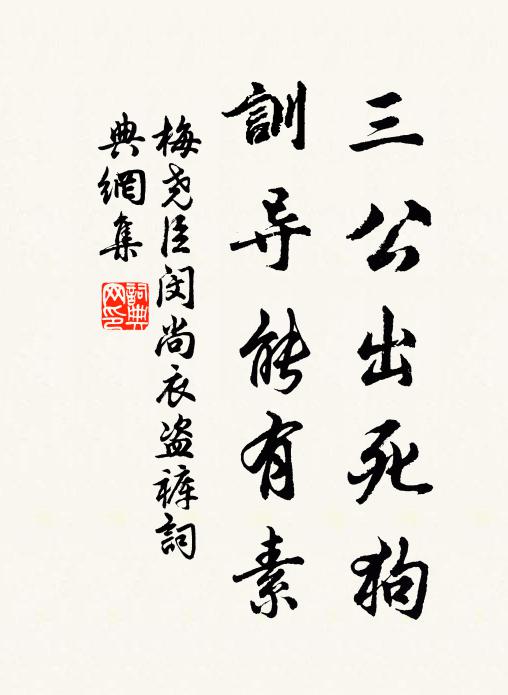 三公出死狗
訓导能有素
梅尧臣闵尚衣盗裤詞
典網集
詞典網印